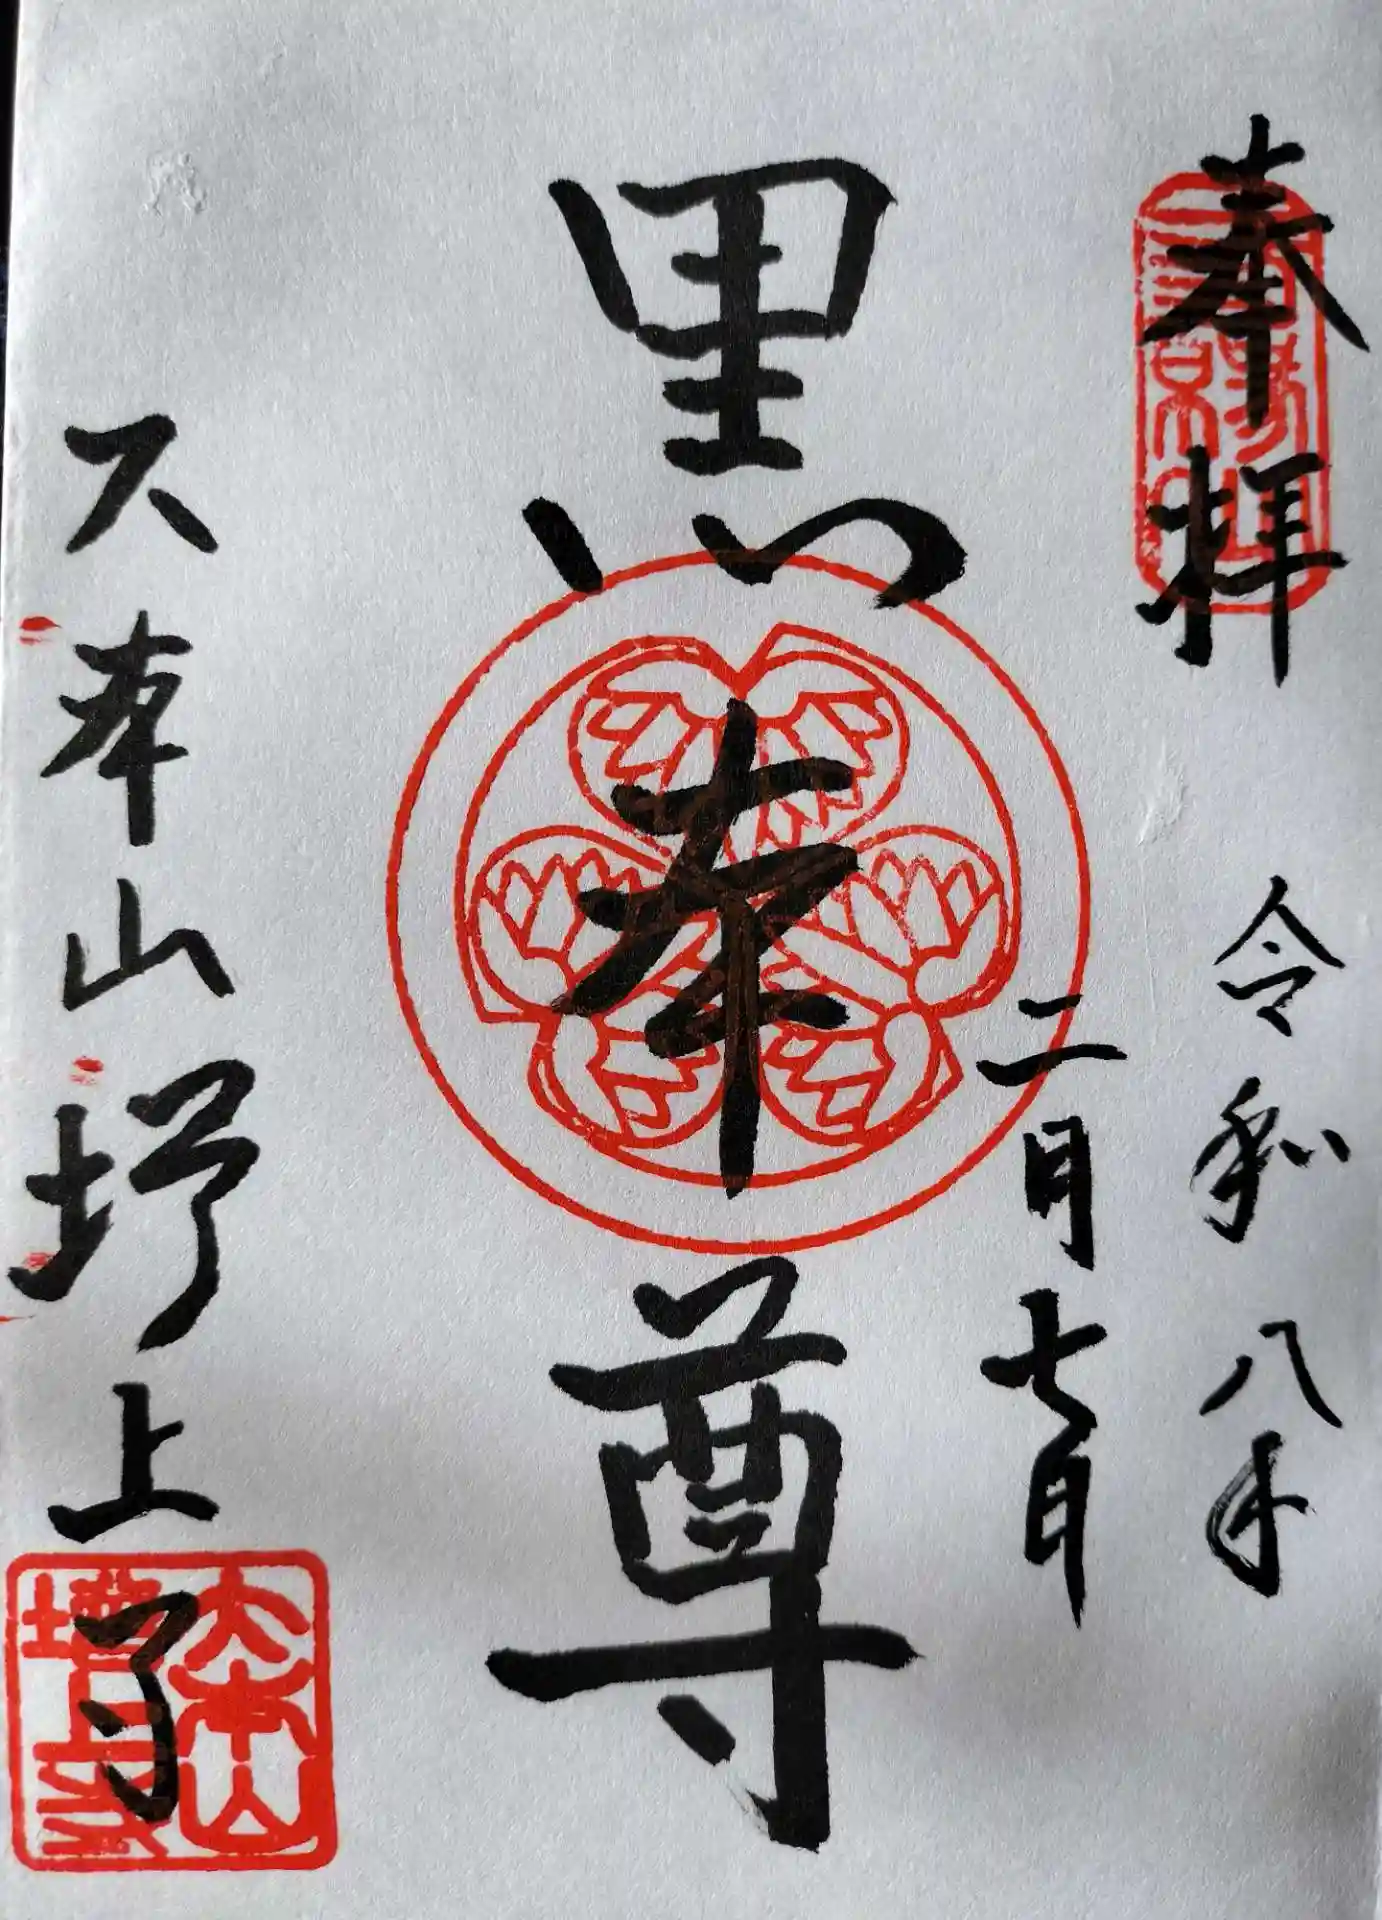 奉拝
令和八年
二月七日
黒本尊
大本山増上寺
大本山
増上寺